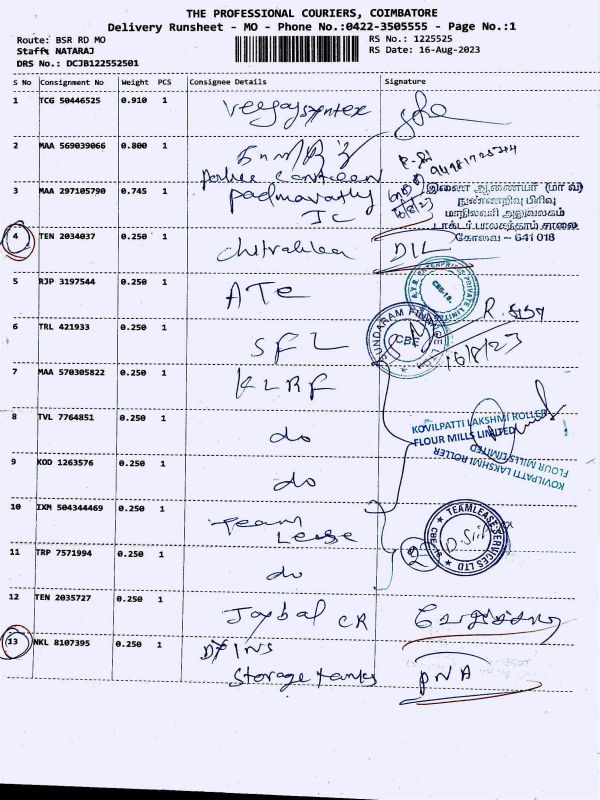 THE PROFESSIONAL COURIERS, COIMBATORE
Delivery Runsheet - MO - Phone No.:0422-3505555 - Page No.:1
Route: BSR RD MO
RS No.: 1225525
Staff: NATARAJ
RS Date: 16-Aug-2023
DRS No.: DCJB122552501
S No Consignment No Weight PCS Consignee Details Signature
1 TCG 50446525 0.910 1
2 MAA 569039066 0.800 1
Police Canteen
94981725
3 MAA 297105790 0.745 1 Padmavathy
Jc
16/8/23
இணை ஆணையர் (மா வ)
நுண்ணறிவு பிரிவு
மாநிலவரி அலுவலகம்
டாக்டர்.பாலசுந்தரம் சாலை
கோவை - 641 018
4 TEN 2034037 0.250 1 Chitralaya DIL
5 RJP 3197544 0.250 1 ATE
ENTERPRISES PRIVATE LIMITED
CBE-18.
R.
6 TRL 421933 0.250 1 SFL
SUNDARAM FINANCE
CBE
16/8/23
7 MAA 570305822 0.250 1 KLRF
8 TVL 7764851 0.250 1 do
KOVILPATTI LAKSHMI ROLLER
FLOUR MILLS LIMITED
KOVILPATTI LAKSHMI ROLLER
FLOUR MILLS LIMITED
9 KOD 1263576 0.250 1 do
10 IXM 504344469 0.250 1 Team
Lease
TEAMLEASE SERVICES LTD
CBE-18
11 TRP 7571994 0.250 1 do
2
12 TEN 2035727 0.250 1 Joybal CR
13 NKL 8107395 0.250 1
Storage tanks PNA